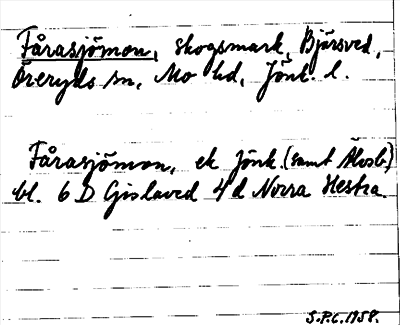 Fårasjömon, skogsmark, Bjärsved,
Öreryds sn, Mo hd, Jönk. l.
Fårasjömon, ek Jönk. (samt Älvsb)
bl. 6 D Gislaved 4 d Norra Hestra.
S.P.C. 1958.